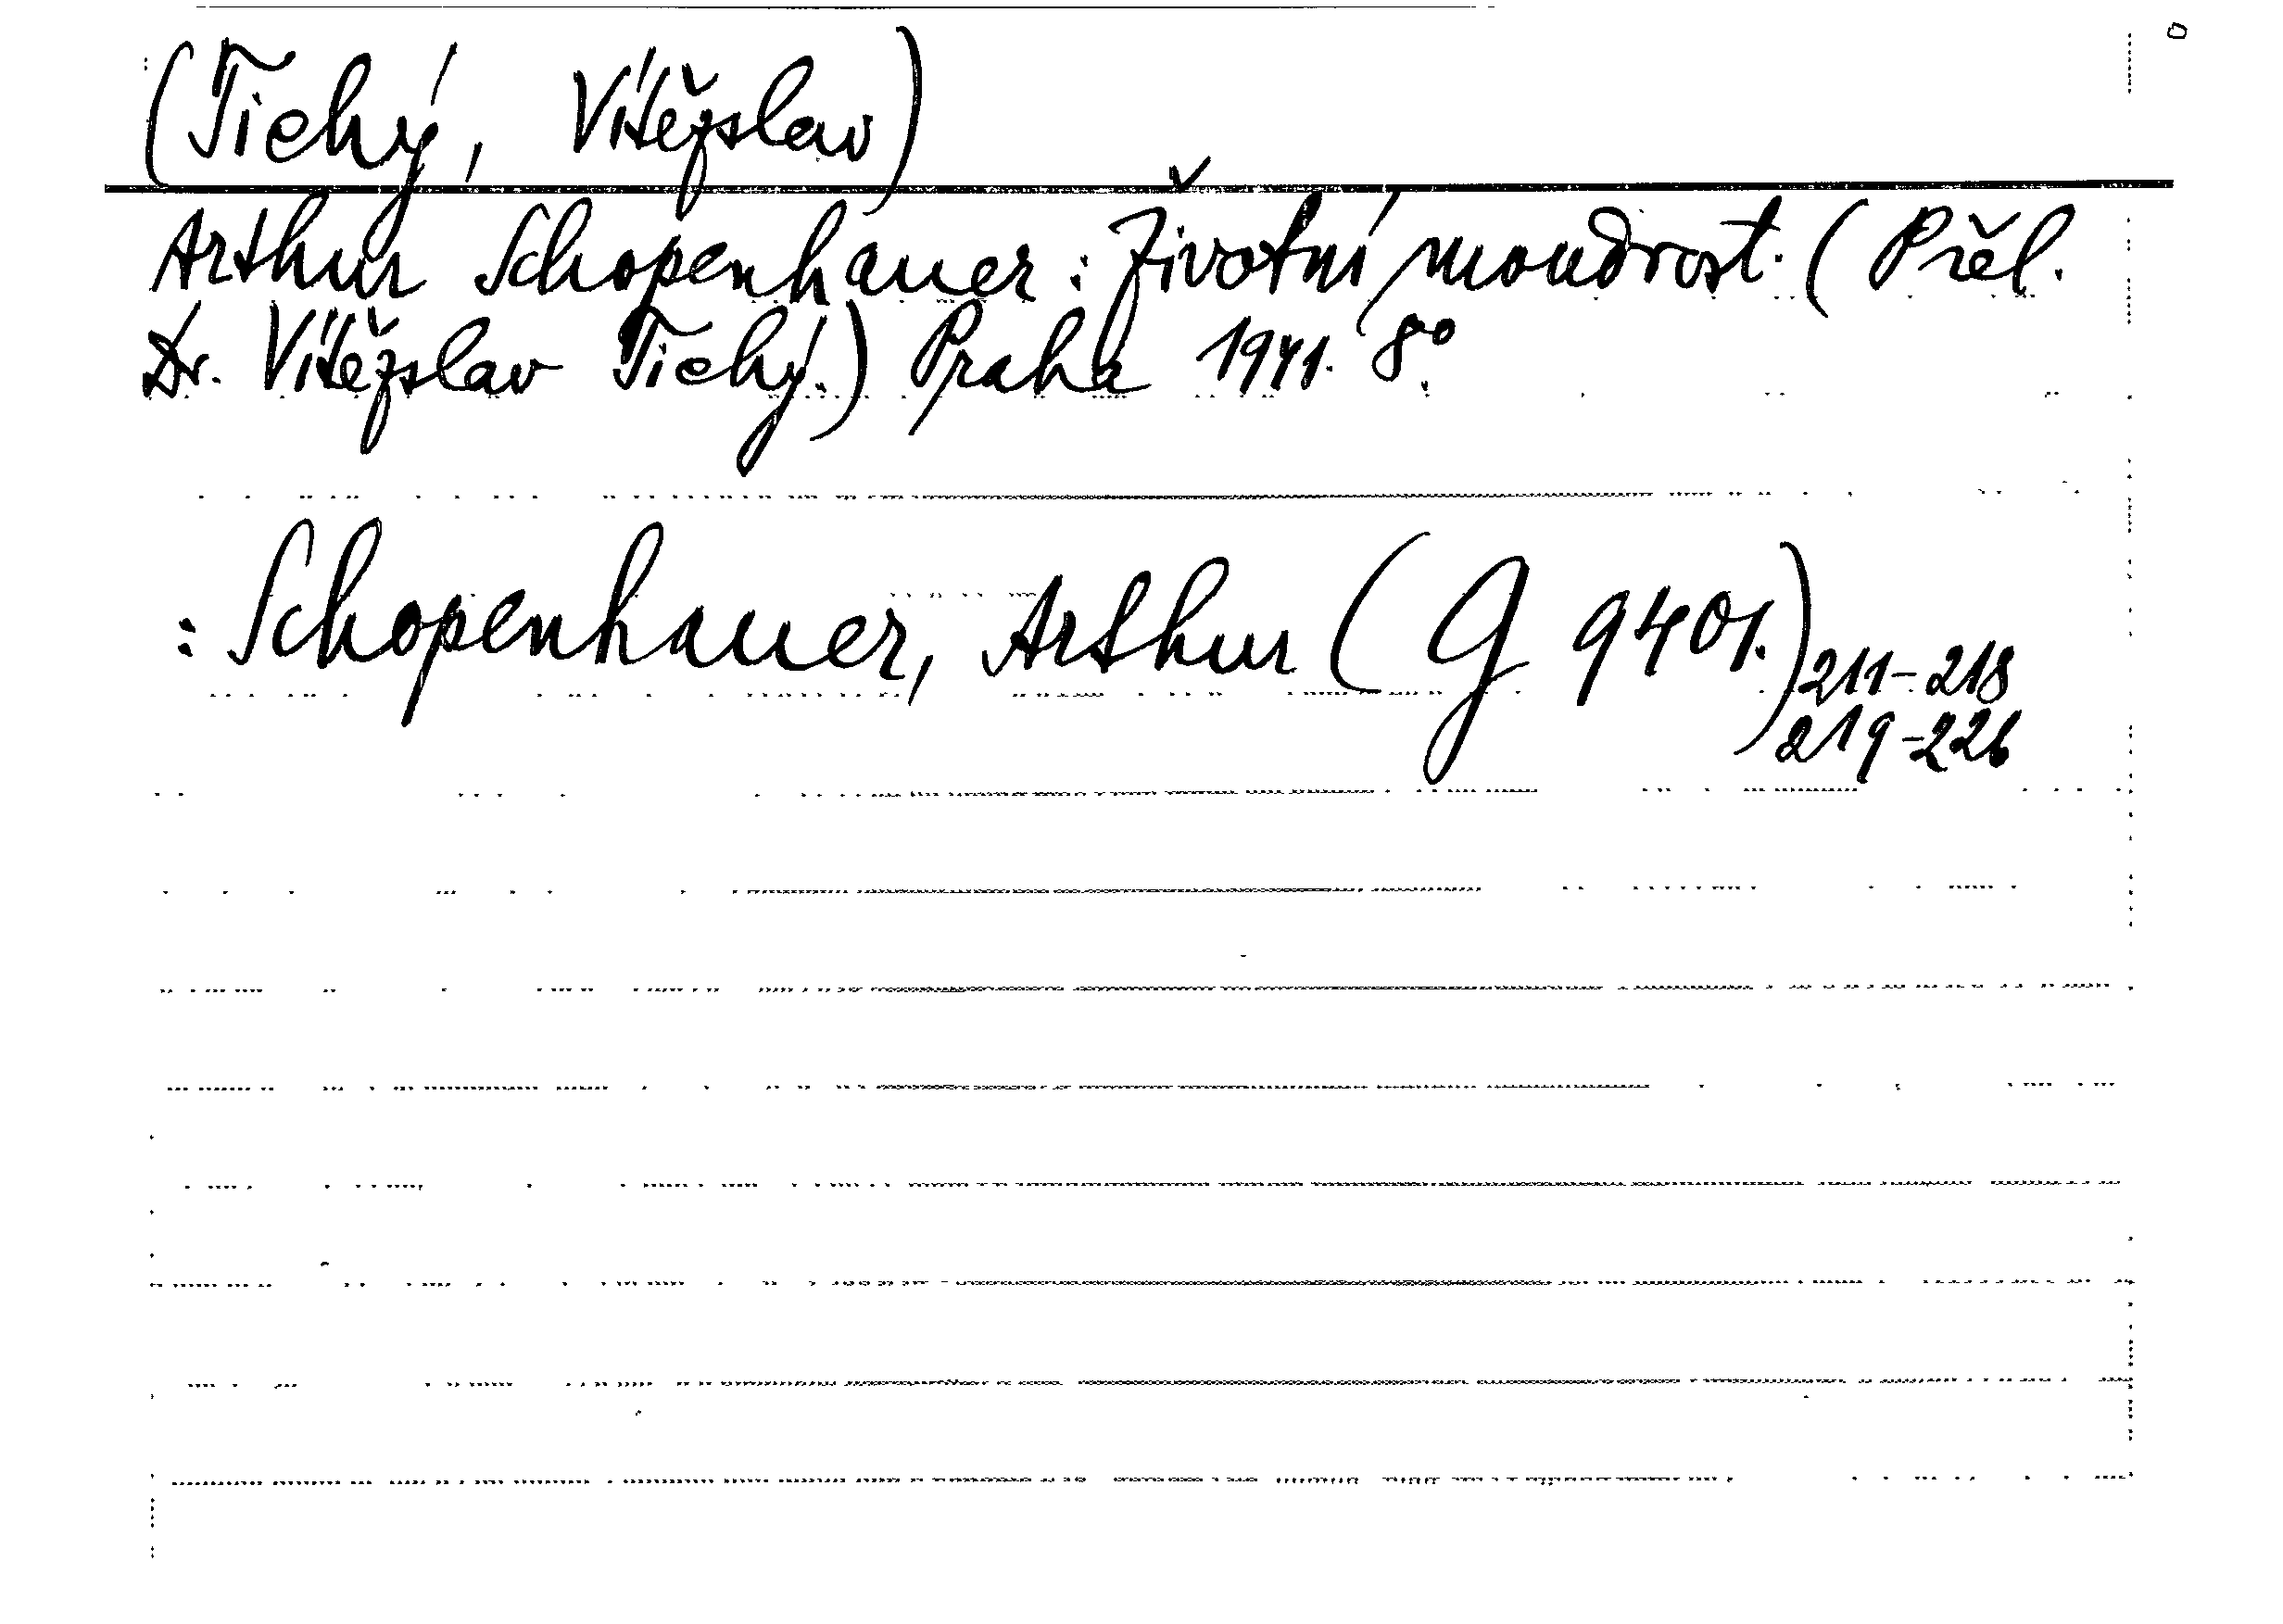 (Tichý, Vítězslav)
Arthur Schopenhauer: Životní moudrost. (Přel.
Dr. Vítězslav Tichý.) Praha 1941. 8°.
: Schopenhauer, Arthur (G 9401.) 211-218
219-226